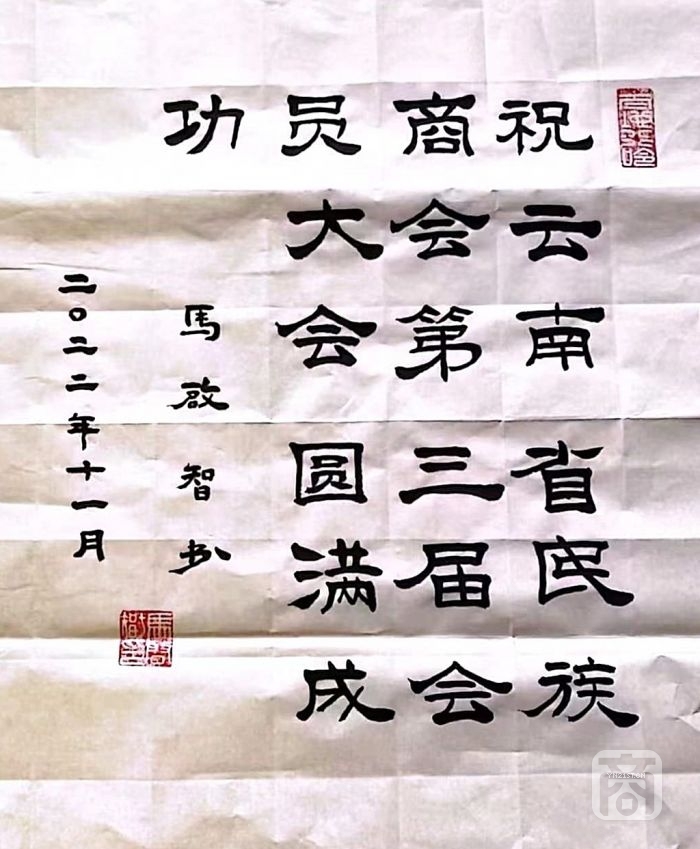 祝云南省民族
商会第三届会
员大会圆满成
功
馬啟智书
二〇二二年十一月
商